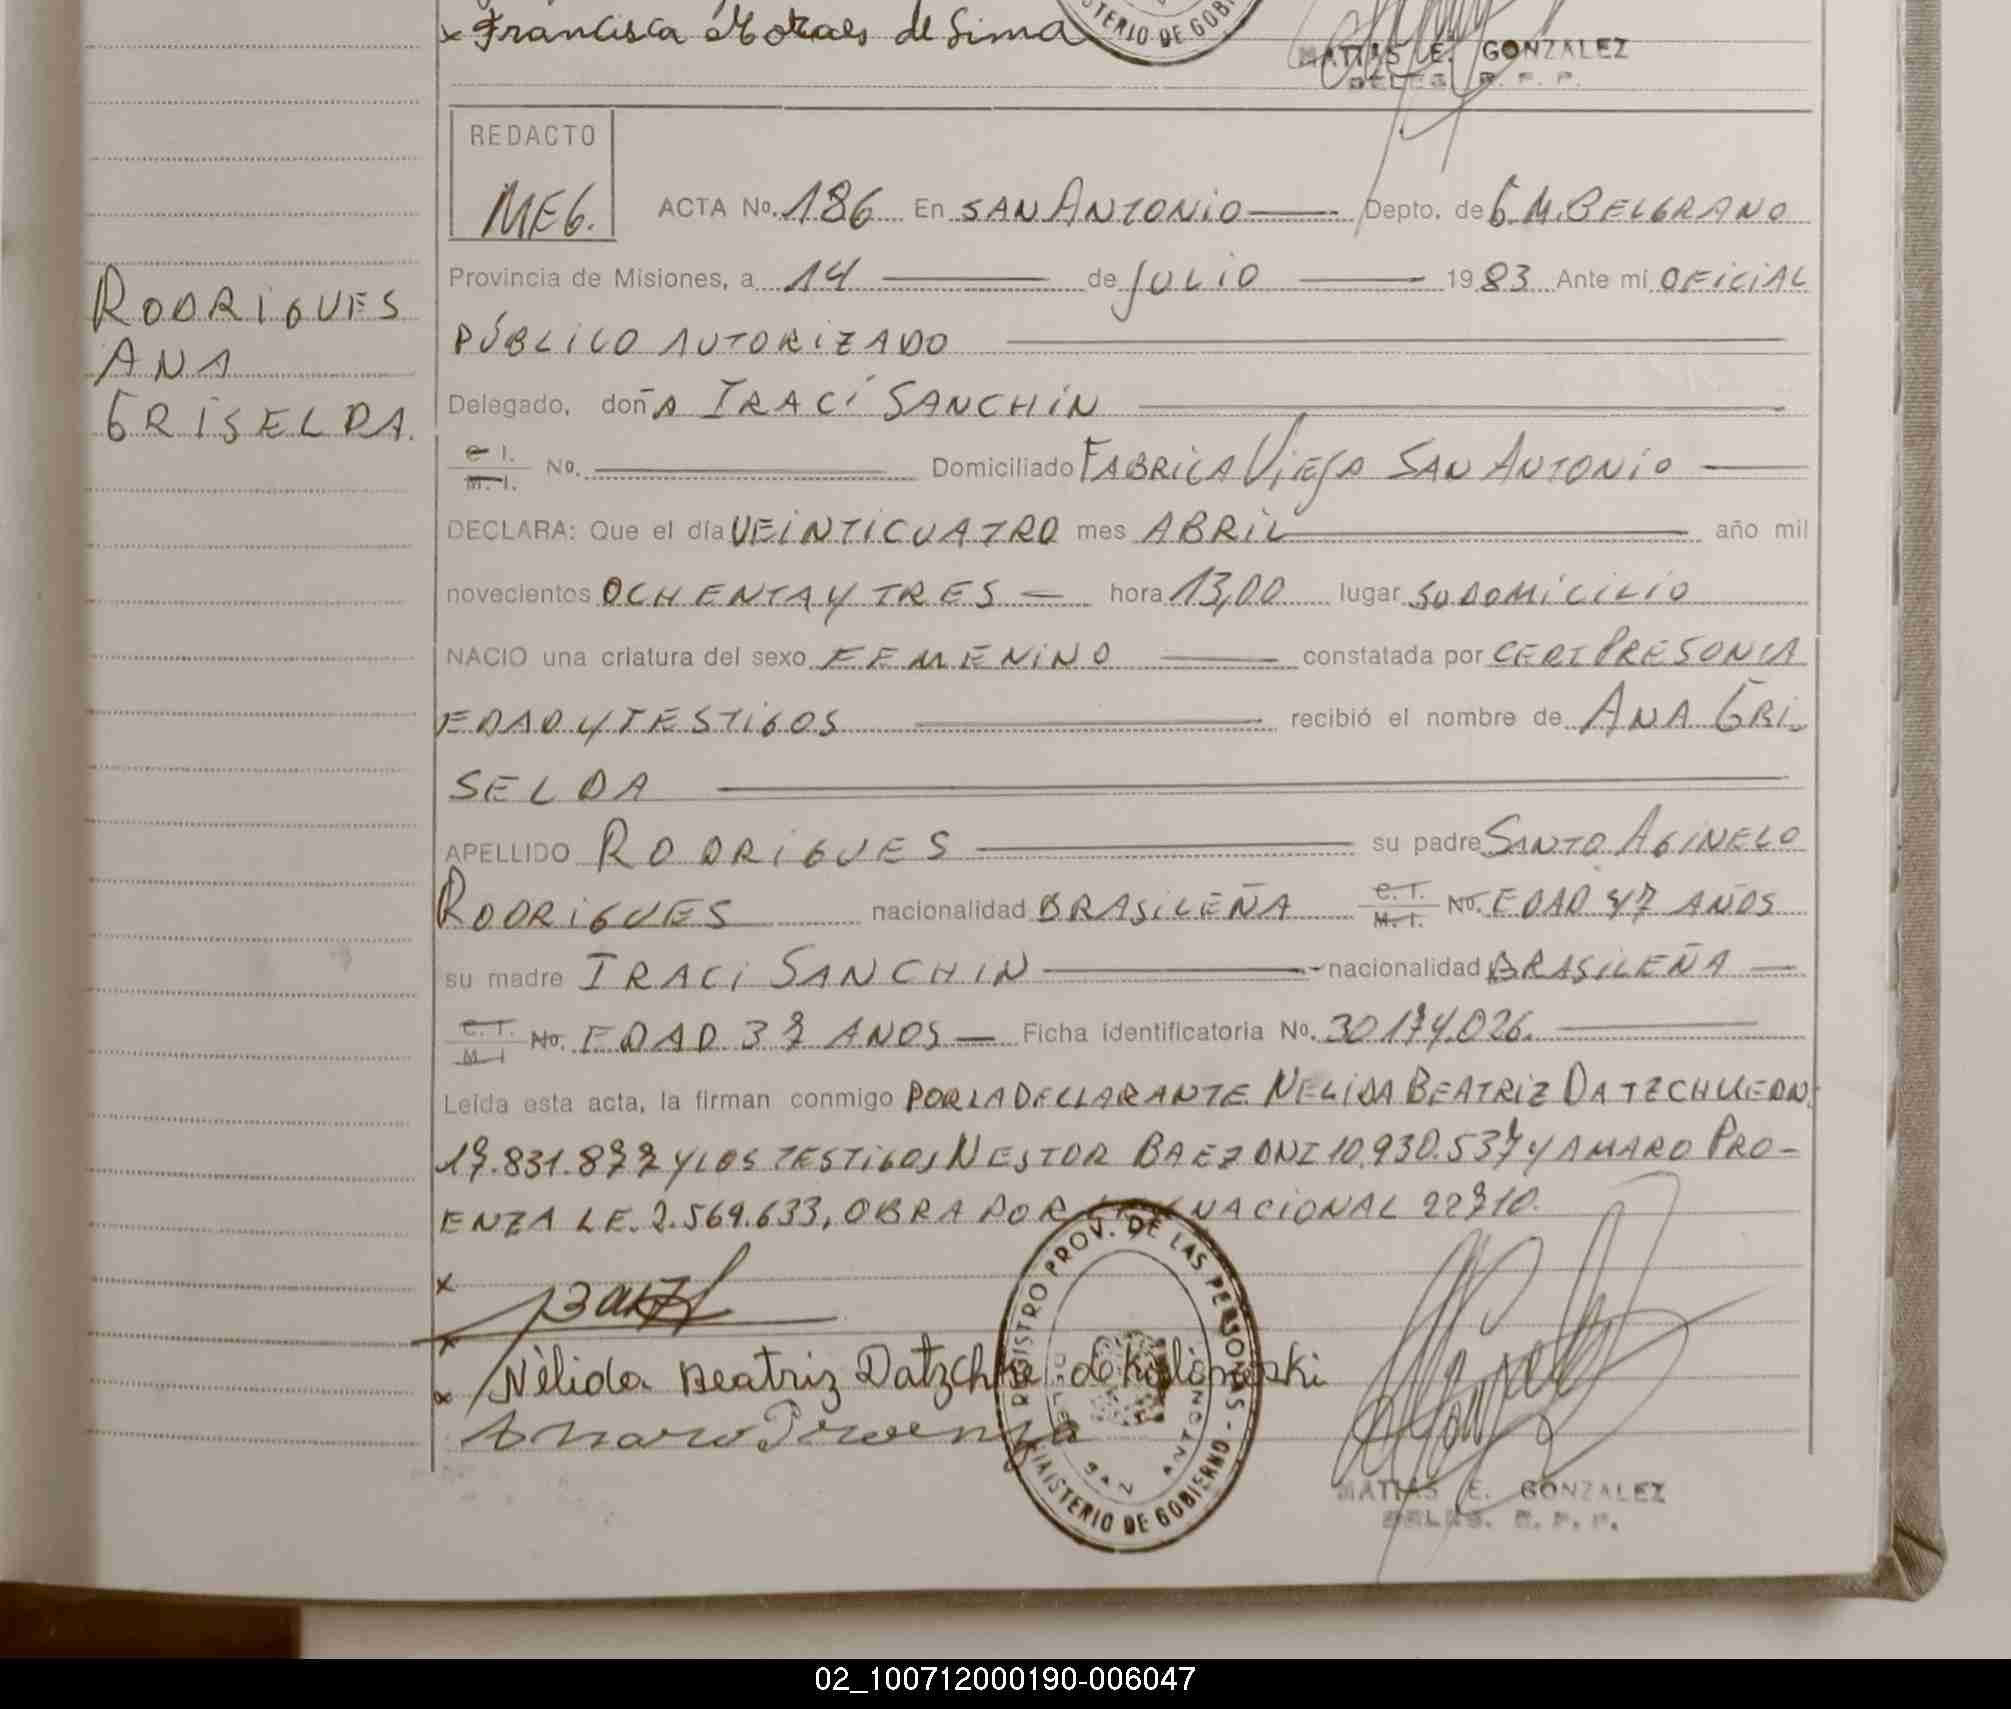 x Francisca Moraes de Lima
MINISTERIO DE GOBI
MATIAS E. GONZALEZ
DELEG. R. P. P.
REDACTO
MEG.
ACTA No. 186 En SAN ANTONIO Depto. de G. M. BELGRANO
Provincia de Misiones, a 14 de JULIO 1983 Ante mí OFICIAL
PÚBLICO AUTORIZADO
RODRIGUES
ANA
GRISELDA.
Delegado, doñA IRACÍ SANCHIN
C. I.
M. I. No. Domiciliado FABRICA VIEJA SAN ANTONIO
DECLARA: Que el día VEINTICUATRO mes ABRIL año mil
novecientos OCHENTA Y TRES hora 13,00 lugar SU DOMICILIO
NACIO una criatura del sexo FEMENINO constatada por CERT PRESONTA
EDAD Y TESTIGOS recibió el nombre de ANA GRI
SELDA
APELLIDO RODRIGUES su padre SANTO AGINELO
RODRIGUES nacionalidad BRASILEÑA C. I. M. I. No. EDAD 47 AÑOS
su madre IRACI SANCHIN nacionalidad BRASILEÑA
C. I. M. I. No. EDAD 37 AÑOS Ficha identificatoria No. 30.174.026.
Leída esta acta, la firman conmigo POR LA DECLARANTE NELIDA BEATRIZ DATZCHKE DNI
17.831.877 Y LOS TESTIGOS NESTOR BAEZ DNI 10.930.537 Y AMARO PRO-
ENZA L.E. 2.569.633, OBRA POR LEY NACIONAL 22710.
x
x Nélida Beatriz Datzchke de
x Amaro Proenza
REGISTRO PROV. DE LAS PERSONAS - MINISTERIO DE GOBIERNO -
SAN ANTONIO
MATIAS E. GONZALEZ
DELEG. R. P. P.
02_100712000190-006047